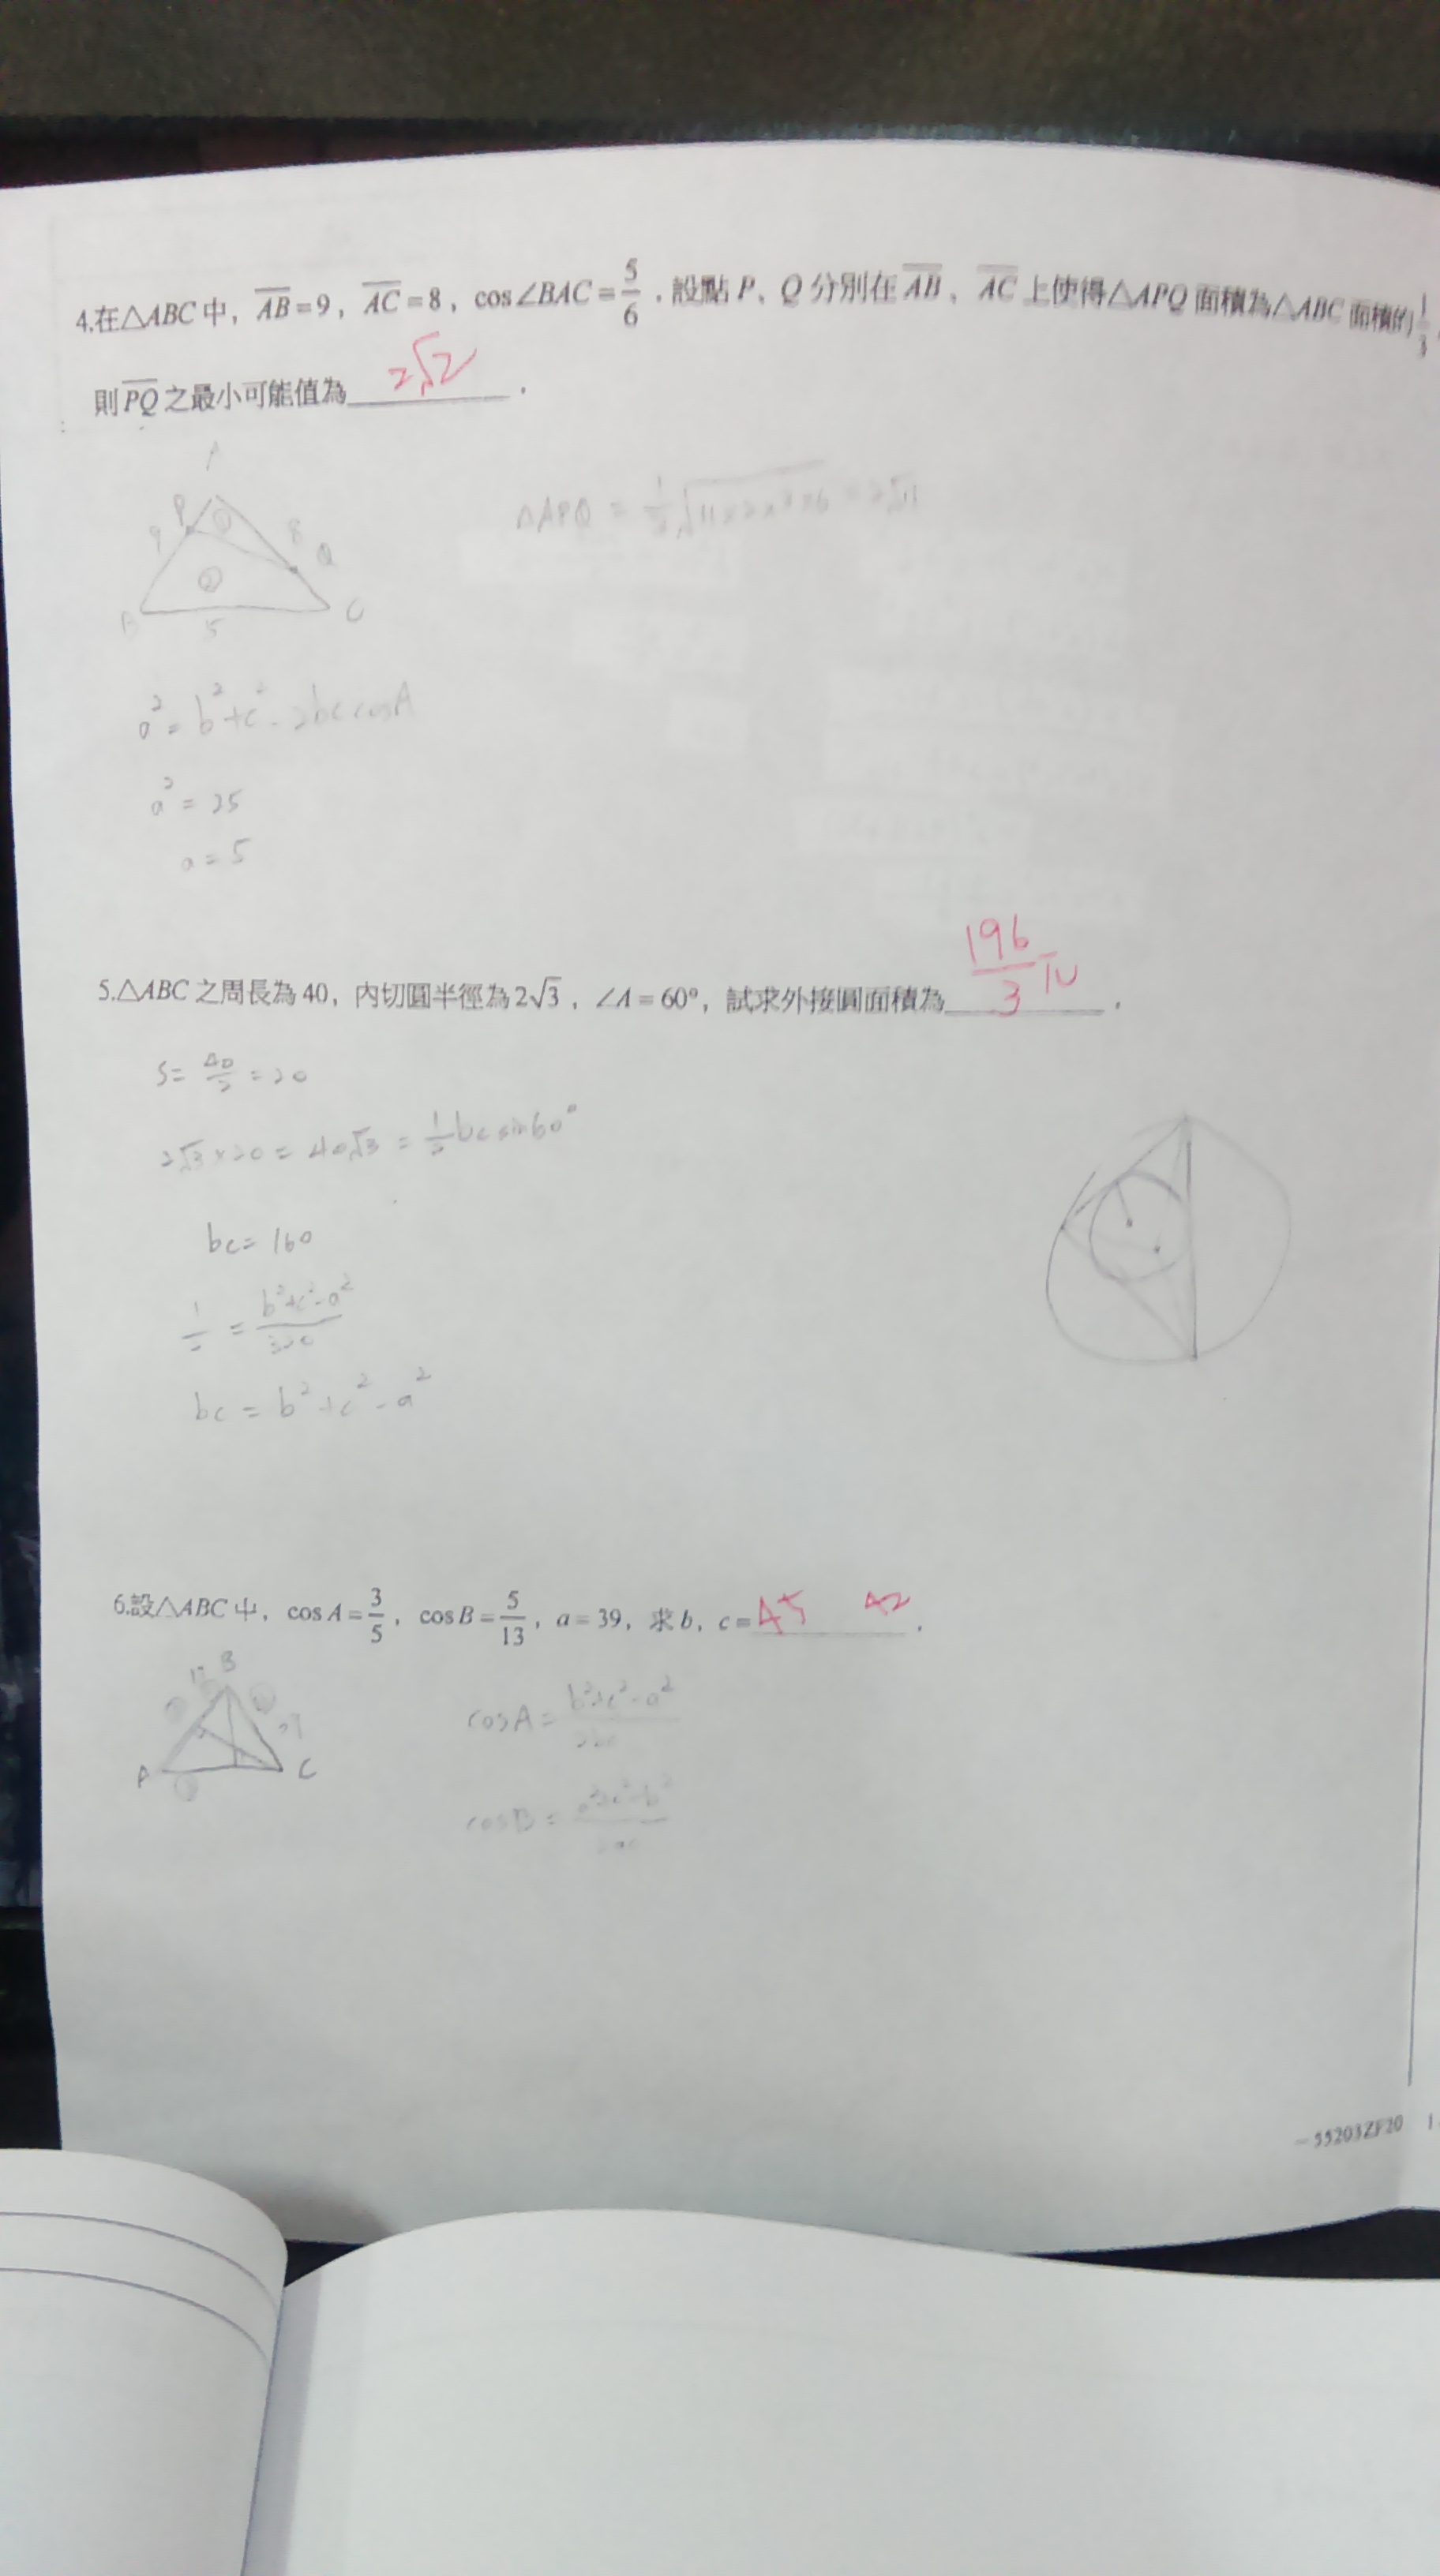 4.在△ABC中, AB=9, AC=8, cos∠BAC=5/6, 設點P、Q分別在AB、AC上使得△APQ面積為△ABC面積的1/3,
則PQ之最小可能值為 2√2 .
P 9 8 Q
B 5 C
a²=b²+c²-2bc cosA
a²=25
a=5
5.△ABC之周長為40, 內切圓半徑為2√3, ∠A=60°, 試求外接圓面積為 196/3 π .
S=40/2=20
2√3×20=40√3=1/2 bc sin60°
bc=160
1/2=(b²+c²-a²)/320
bc=b²+c²-a²
6.設△ABC中, cosA=3/5, cosB=5/13, a=39, 求b, c= 45 42 .
B
A C
cosA=(b²+c²-a²)/2bc
cosB=(a²+c²-b²)/2ac
-55203ZF20